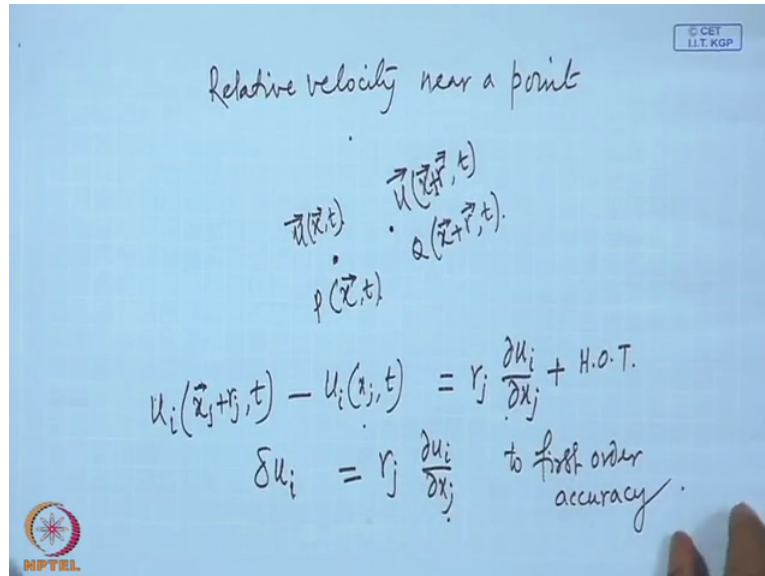 © CET
I.I.T. KGP
Relative velocity near a point
u⃗(x⃗,t)
u⃗(x⃗+r⃗,t)
P(x⃗,t)
Q(x⃗+r⃗,t).
u_i(x⃗_j+r_j,t) − u_i(x_j,t) = r_j ∂u_i/∂x_j + H.O.T.
δu_i = r_j ∂u_i/∂x_j to first order
accuracy.
NPTEL